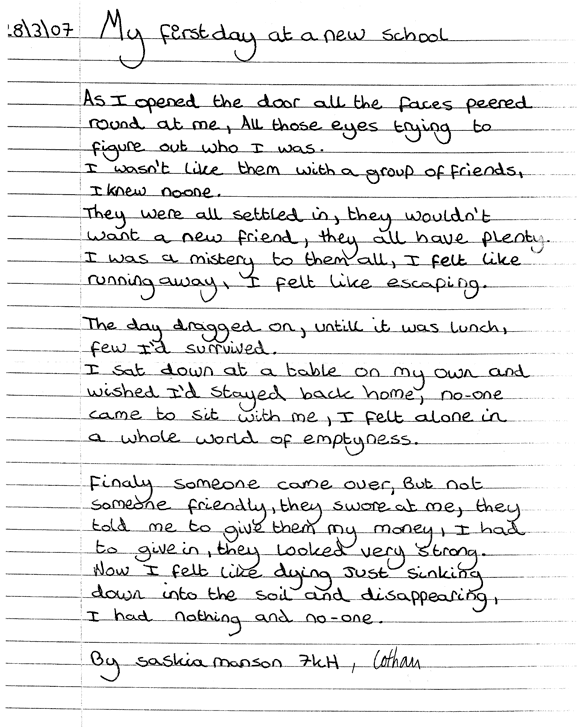 8/3/07 My first day at a new school
As I opened the door all the faces peered
round at me, All those eyes trying to
figure out who I was.
I wasn't like them with a group of friends,
I knew noone.
They were all settled in, they wouldn't
want a new friend, they all have plenty.
I was a mistery to them all, I felt like
running away, I felt like escaping.
The day dragged on, untill it was lunch,
few I'd survived.
I sat down at a table on my own and
wished I'd stayed back home, no-one
came to sit with me, I felt alone in
a whole world of emptyness.
Finaly someone came over, But not
someone friendly, they swore at me, they
told me to give them my money, I had
to give in, they looked very strong.
Now I felt like dying Just sinking
down into the soil and disappearing,
I had nothing and no-one.
By saskia manson 7KH, Cotham